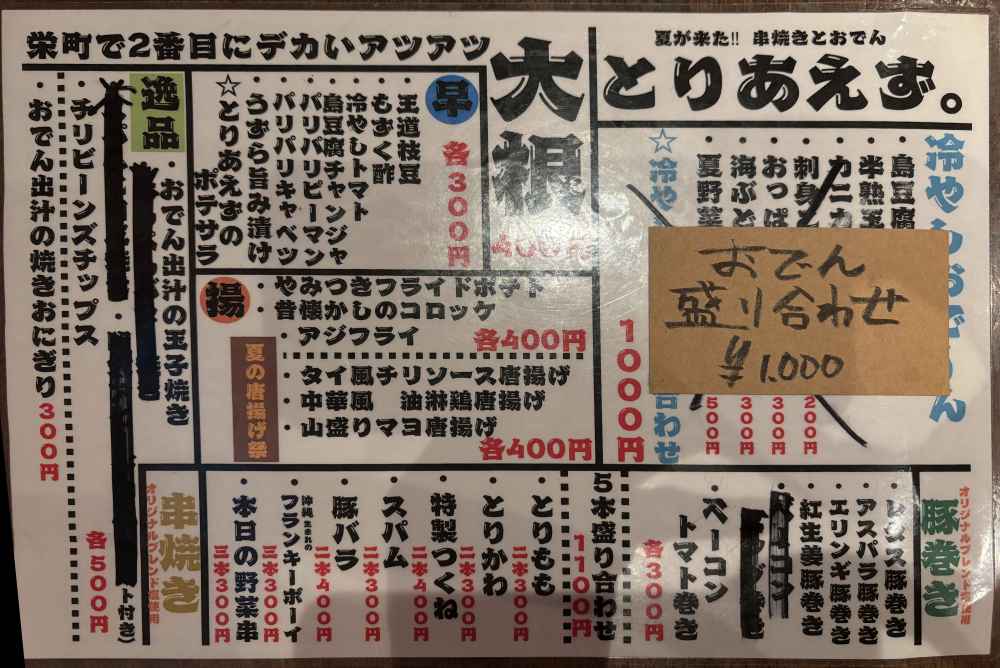 夏が来た!! 串焼きとおでん
とりあえず。
栄町で2番目にデカいアツアツ
大根
400円
冷やしおでん
・島豆腐
・半熟玉
・カニカ
・刺身
・おっぱ
・海ぶど
・夏野菜
200円
300円
300円
500円
☆冷や
合わせ
1000円
おでん
盛り合わせ
¥1.000
早
各300円
・王道枝豆
・もずく酢
・冷やしトマト
・島豆腐チャンジャ
・パリパリピーマン
・パリパリキャベツ
・うずら旨み漬け
☆とりあえずの
ポテサラ
揚
・やみつきフライドポテト
・昔懐かしのコロッケ
・アジフライ
各400円
夏の唐揚げ祭
・タイ風チリソース唐揚げ
・中華風 油淋鶏唐揚げ
・山盛りマヨ唐揚げ
各400円
逸品
・おでん出汁の玉子焼き
ト付き)
各500円
・チリビーンズチップス
・おでん出汁の焼きおにぎり300円
豚巻き
オリジナルブレンド塩使用
・レタス豚巻き
・アスパラ豚巻き
・エリンギ豚巻き
・紅生姜豚巻き
・ベーコン
トマト巻き
各300円
串焼き
オリジナルブレンド塩使用
5本盛り合わせ
1100円
・とりもも
二本300円
・とりかわ
二本300円
・特製つくね
二本400円
・スパム
二本300円
・豚バラ
二本400円
沖縄生まれの
・フランキーボーイ
三本300円
・本日の野菜串
三本300円